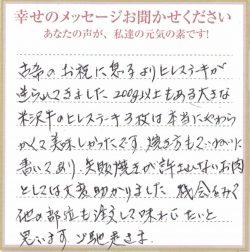 幸せのメッセージお聞かせください
あなたの声が、私達の元気の素です!
古希のお祝に息子よりヒレステーキが
送られてきました。200g以上もある大きな
米沢牛のヒレステーキ3枚は本当にやわら
かくて美味しかったです。焼き方もていねいに
書いてあり、失敗焼きが許されないお肉
としては大変助かりました。機会をみて
他の部位も注文して味わいたいと
思います。ご馳走さま。